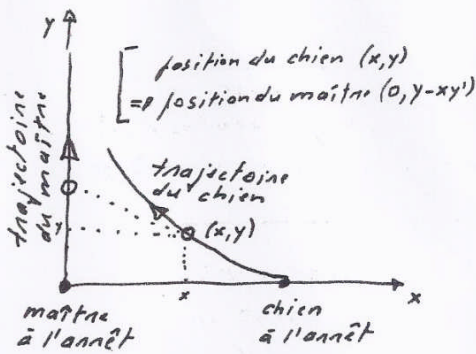 y
position du chien (x,y)
⇒ position du maître (0, y-xy')
trajectoire
du maître
trajectoire
du chien
y
(x,y)
x
x
maître
à l'arrêt
chien
à l'arrêt